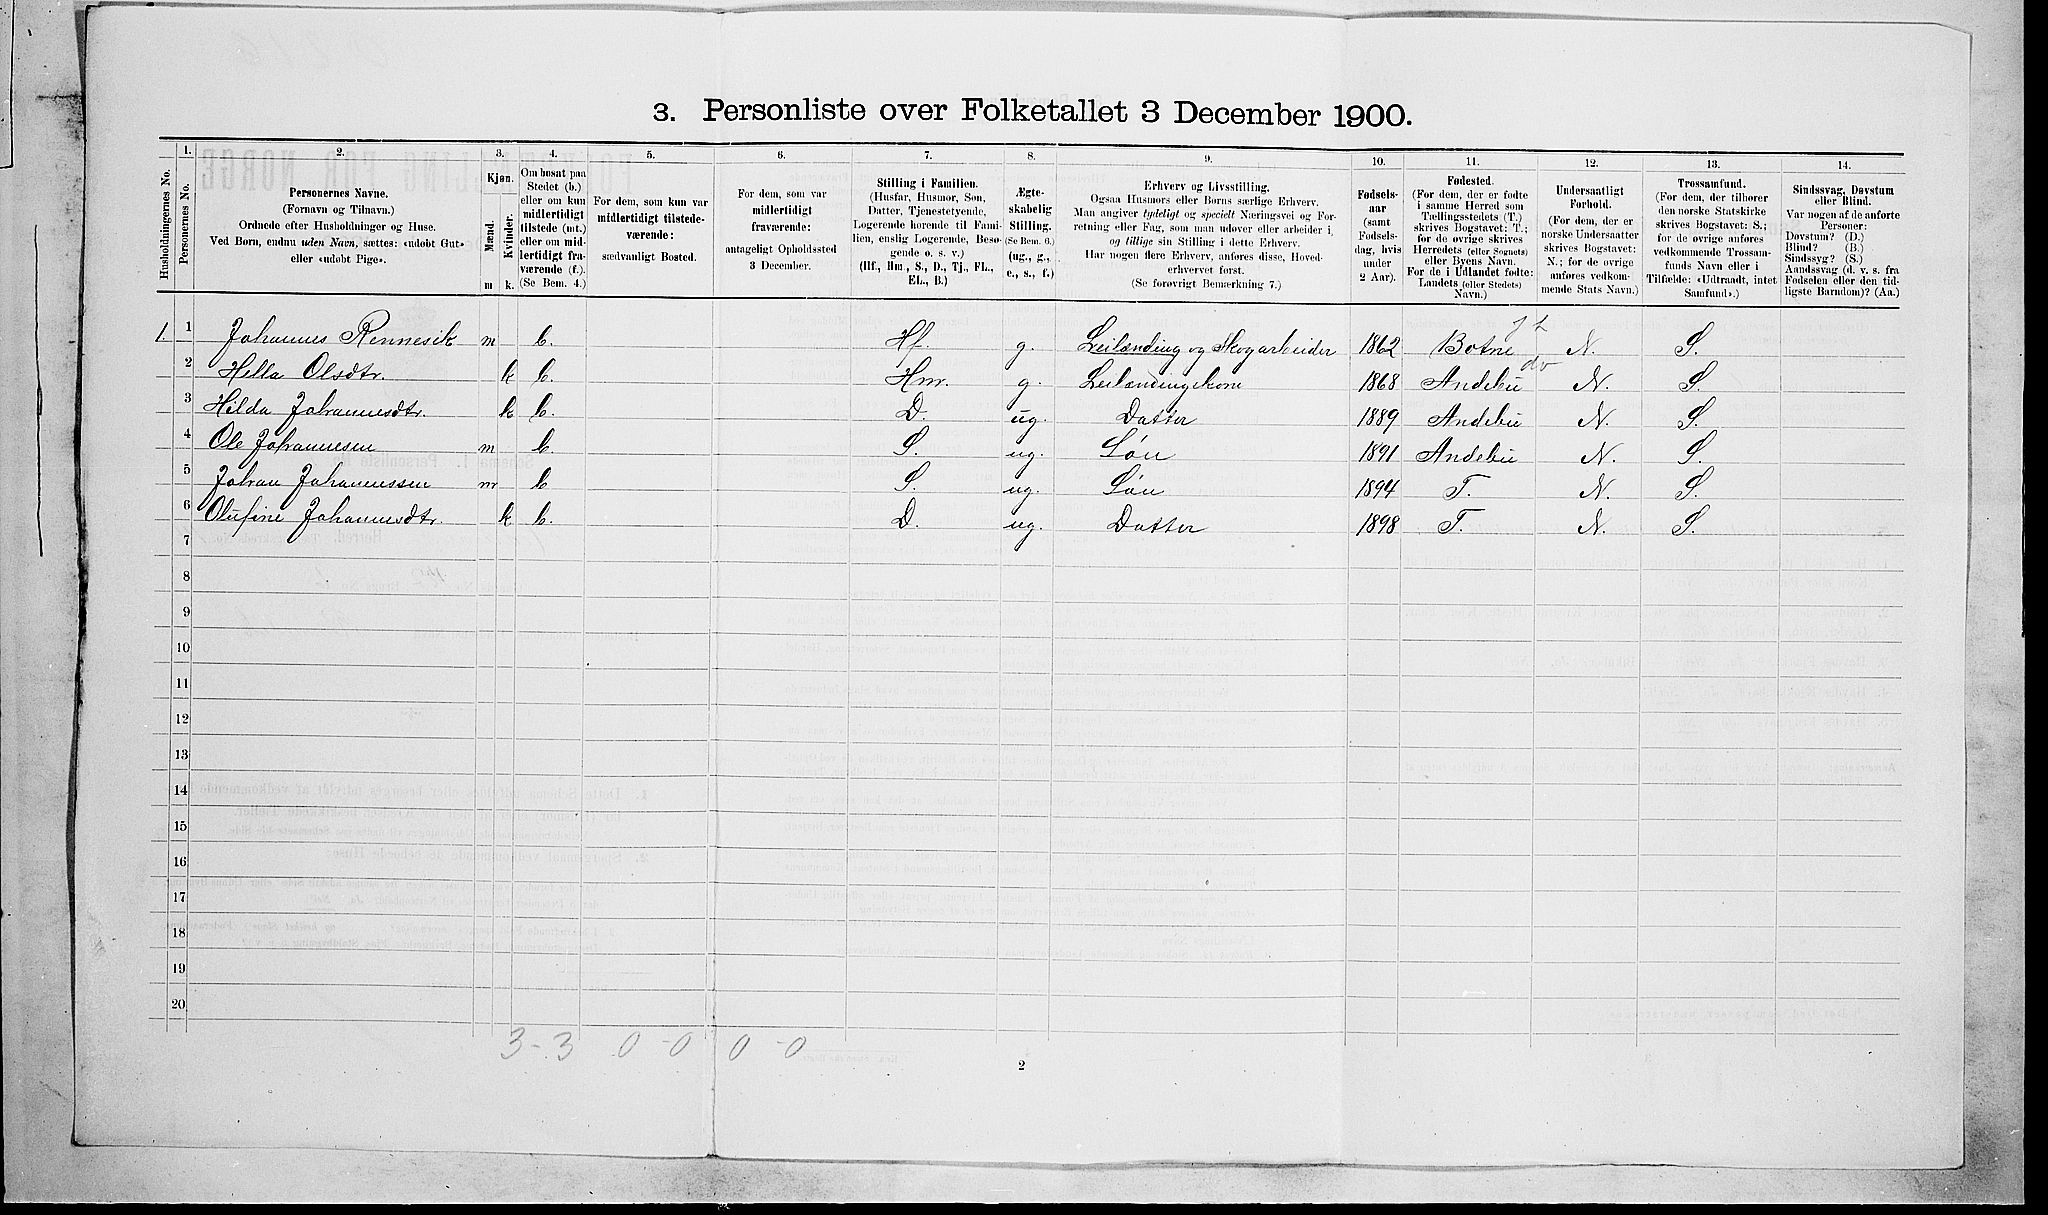 3. Personliste over Folketallet 3 December 1900.
Husholdningernes No.
1. Personernes No.
2. Personernes Navne. (Fornavn og Tilnavn.) Ordnede efter Husholdninger og Huse. Ved Børn, endnu uden Navn, sættes: «udøbt Gut» eller «udøbt Pige».
3. Kjøn. Mænd. Kvinder. m k.
4. Om bosat paa Stedet (b.) eller om kun midlertidigt tilstede (mt.) eller om midlertidigt fraværende (f.). (Se Bem. 4.)
5. For dem, som kun var midlertidigt tilstedeværende: sædvanligt Bosted.
6. For dem, som var midlertidigt fraværende: antageligt Opholdssted 3 December.
7. Stilling i Familien. (Husfar, Husmor, Søn, Datter, Tjenestetyende, Logerende hørende til Familien, enslig Logerende, Besøgende o. s. v.) (Hf., Hm., S., D., Tj., FL., EL., B.)
8. Ægteskabelig Stilling. (Se Bem. 6.) (ug., g., e., s., f.)
9. Erhverv og Livsstilling. Ogsaa Husmors eller Børns særlige Erhverv. Man angiver tydeligt og specielt Næringsvei og Forretning eller Fag, som man udøver eller arbeider i, og tillige sin Stilling i dette Erhverv. Har nogen flere Erhverv, anføres disse, Hovederhvervet først. (Se forøvrigt Bemærkning 7.)
10. Fødselsaar (samt Fødselsdag, hvis under 2 Aar).
11. Fødested. (For dem, der er fødte i samme Herred som Tællingsstedets (T.) skrives Bogstavet: T.; for de øvrige skrives Herredets (eller Sognets) eller Byens Navn. For de i Udlandet fødte: Landets (eller Stedets) Navn.)
12. Undersaatligt Forhold. (For dem, der er norske Undersaatter skrives Bogstavet: N.; for de øvrige anføres vedkommende Stats Navn.)
13. Trossamfund. (For dem, der tilhører den norske Statskirke skrives Bogstavet: S.; for de øvrige anføres vedkommende Trossamfunds Navn eller i Tilfælde: «Udtraadt, intet Samfund».)
14. Sindssvag, Døvstum eller Blind. Var nogen af de anførte Personer: Døvstum? (D.) Blind? (B.) Sindssyg? (S.) Aandssvag (d. v. s. fra Fødselen eller den tidligste Barndom)? (Aa.)
1. 1 Johannes Rennesik m b. Hf. g. Leilænding og Skogarbeider 1862 Botne N. S.
2 Hella Olsdtr. k b. Hm. g. Leilændingskone 1868 Andebu do N. S.
3 Hilda Johannesdtr. k b. D. ug. Datter 1889 Andebu N. S.
4 Ole Johannesen m b S. ug. Søn 1891 Andebu N. S.
5 Johan Johannssen m b S. ug. Søn 1894 T. N. S.
6 Olufine Johannesdtr. k b. D. ug. Datter 1898 T. N. S.
7
8
9
10
11
12
13
14
15
16
17
18
19
20
3-3 0-0 0-0
2